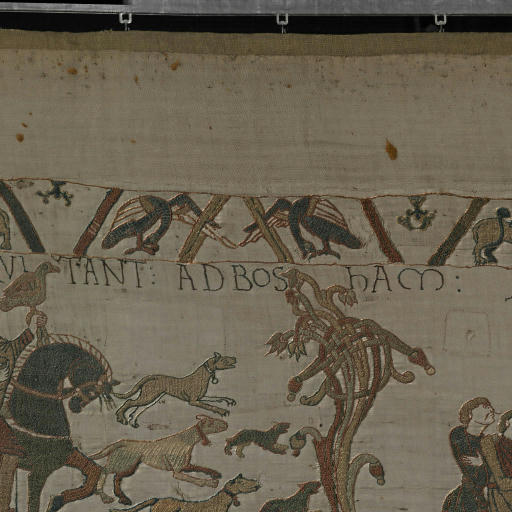 VITANT: AD BOS hAM: